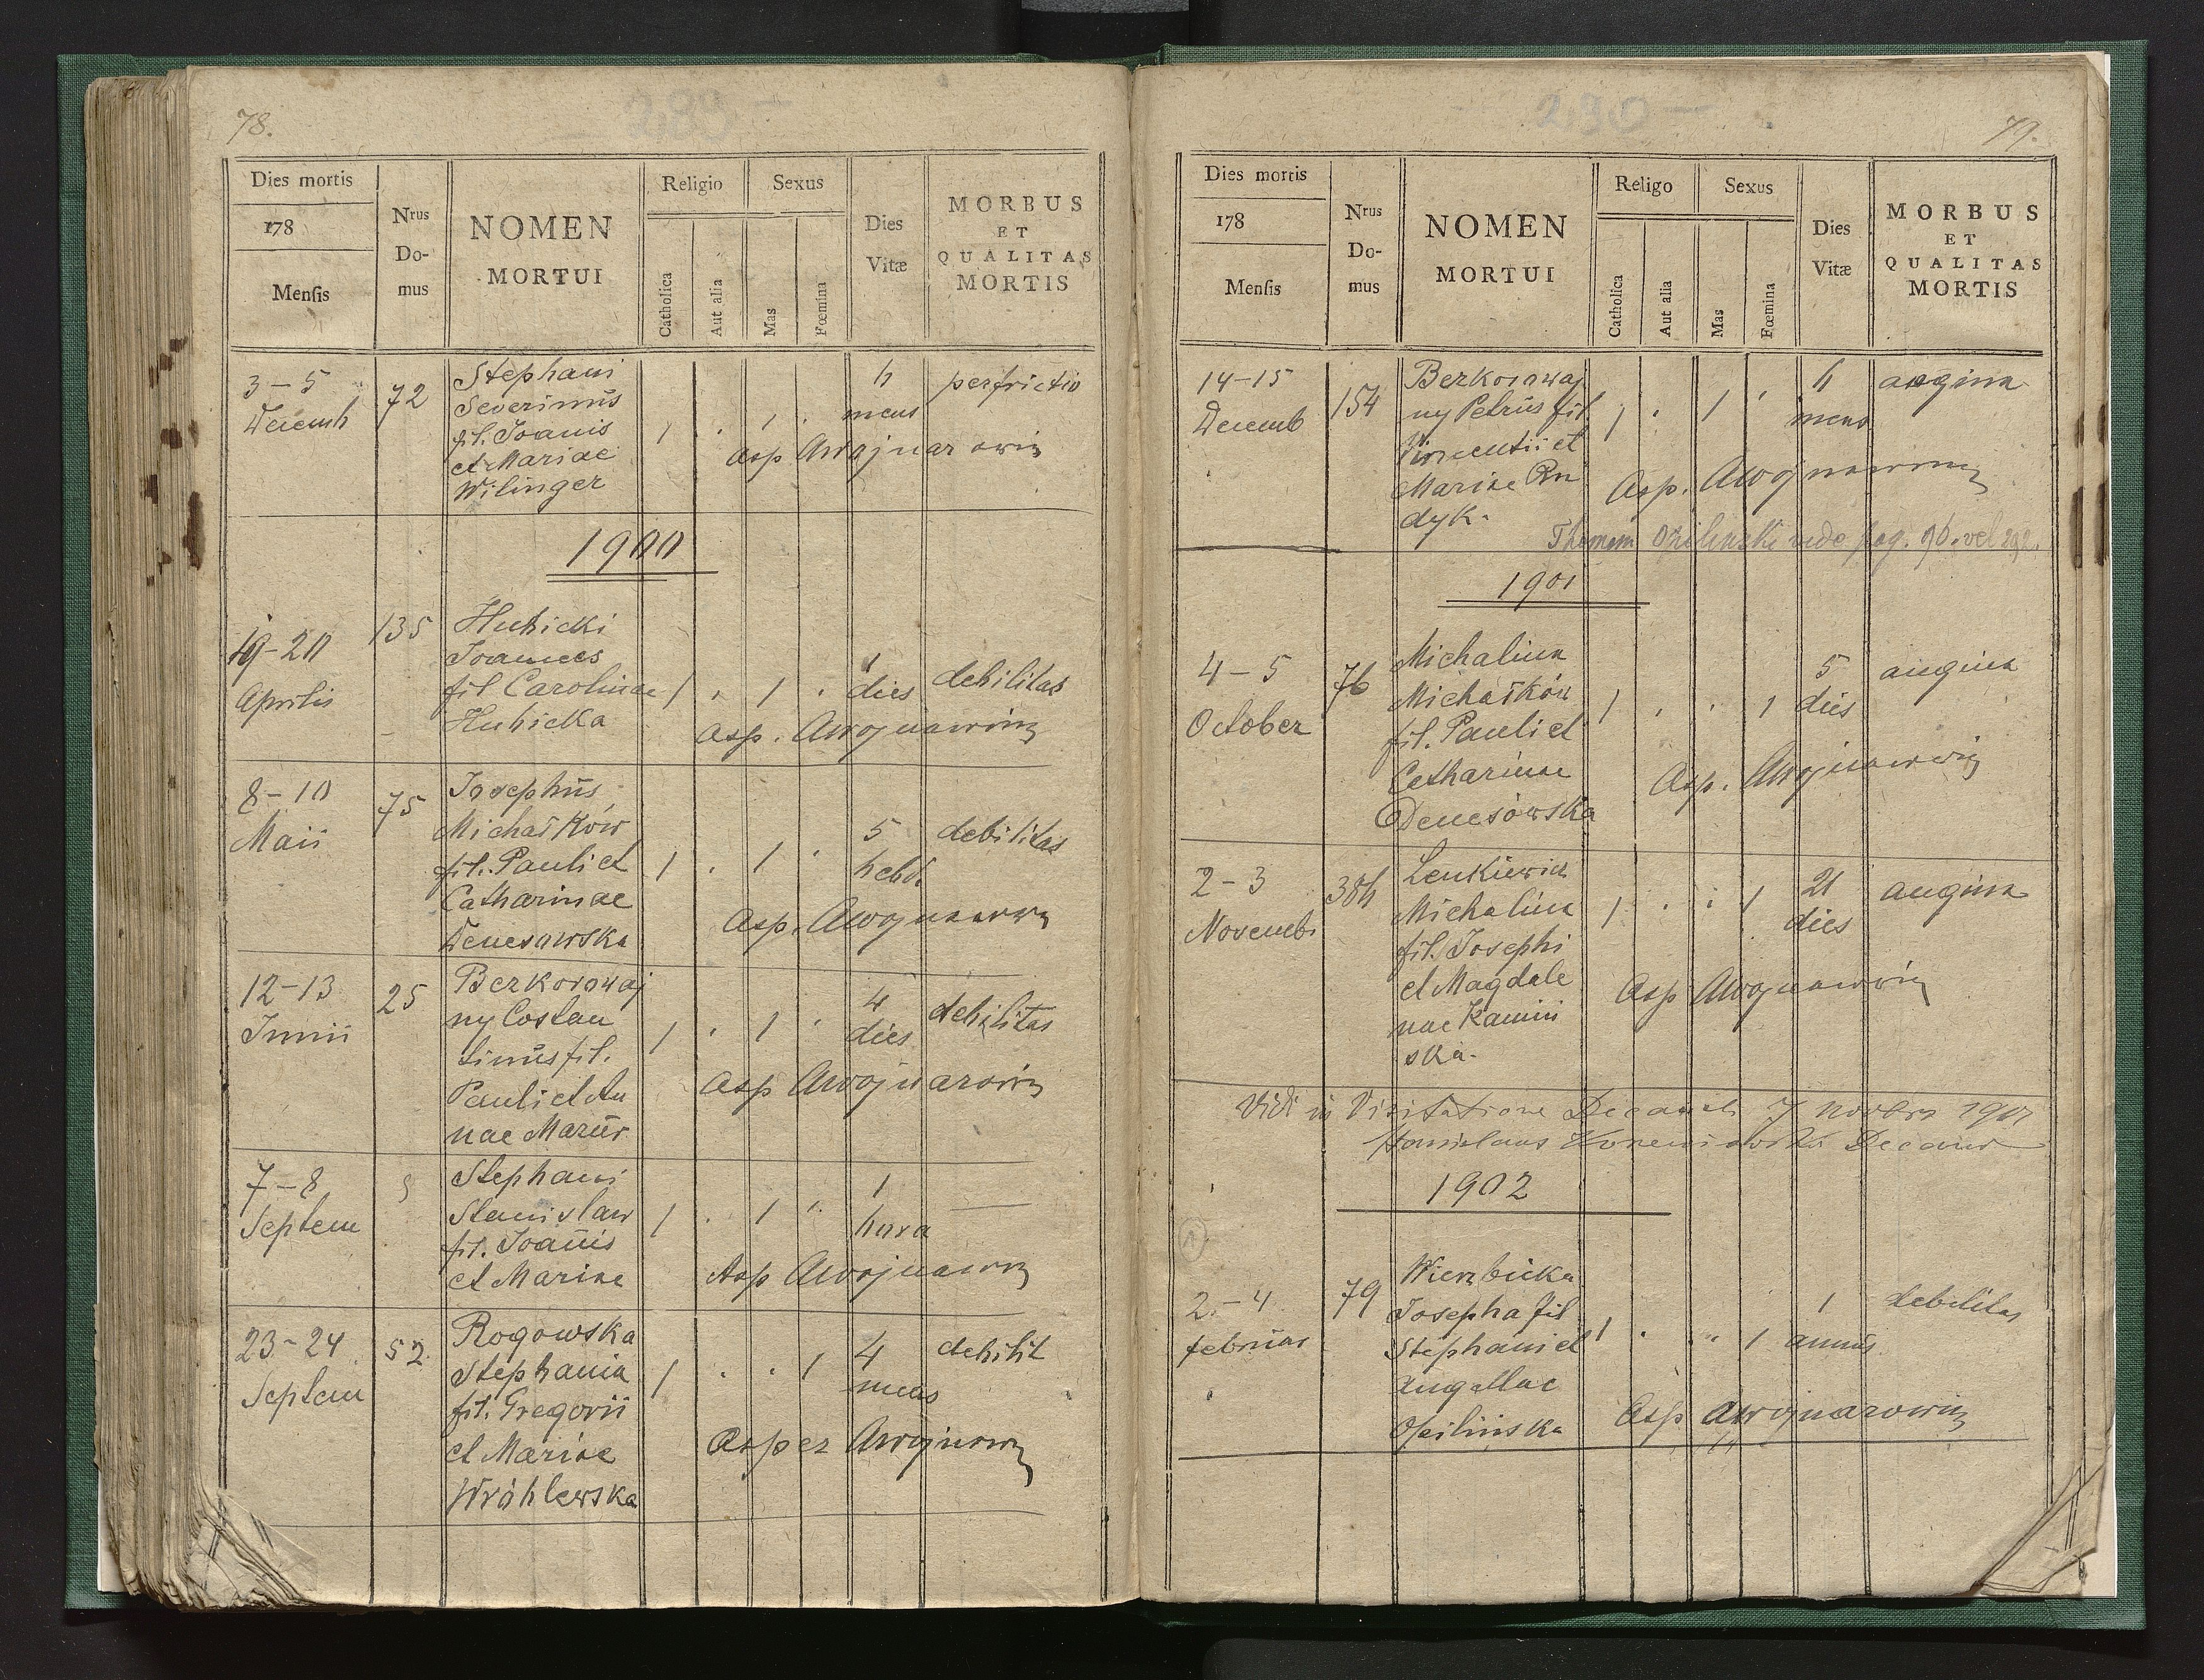 78.
289
Dies mortis
178
Mensis
Nrus
Do-
mus
NOMEN
MORTUI
Religio
Catholica
Aut alia
Sexus
Mas
Fœmina
Dies
Vitæ
MORBUS
ET
QUALITAS
MORTIS
3-5
Decemb
72
Stephani
Severinus
fil. Joanis
et Mariae
Wilinger
1 . 1 .
h
mens
perfrictio
Asp AWojnarowicz
1900
19-20
Aprilis
135
Hubicki
Joannes
fil Carolinae
Hubicka
1 . 1 .
1
dies
debilitas
Asp. AWojnarowicz
8-10
Maii
75
Josephus
Michałków
fil. Pauli et
Catharinae
Denesowska
1 . 1 .
5
hebd.
debilitas
Asp. AWojnarowicz
12-13
Junii
25
Berkorowaj
ny Costan
tinus fil.
Pauli et An
nae Marur
1 . 1 .
4
dies
debilitas
Asp AWojnarowicz
7-8
Septem
5
Stephani
Stanislaw
fil. Joanis
et Mariae
1 . 1 .
1
hora
Asp AWojnarowicz
23-24
Septem
52
Rogowska
Stephania
fil. Gregorii
et Mariae
Wróblewska
1 . . 1
4
mens
debilit
Asper AWojnarowicz
290
79.
Dies mortis
178
Mensis
Nrus
Do-
mus
NOMEN
MORTUI
Religo
Catholica
Aut alia
Sexus
Mas
Fœmina
Dies
Vitæ
MORBUS
ET
QUALITAS
MORTIS
14-15
Decemb
154
Berkorowaj
ny Petrus fil.
Vincentii et
Mariae Ru
dyk.
1 . 1 .
h
mens
angina
Asp. AWojnarowicz
Thomam Ozilinski vide pag. 96. vel 292.
1901
4-5
October
76
Michalina
Michałków
fil. Pauli et
Catharinae
Denesówska
1 . . 1
5
dies
angina
Asp. AWojnarowicz
2-3
Novemb
30h
Lenkiewicz
Michalina
fil. Josephi
et Magdale
nae Kamiń
ska.
1 . . 1
21
dies
angina
Asp AWojnarowicz
Vidi in Visitatione Decanali 7 novbr 1901
Stanislaus Decanus
1902
1
2-4
februar
79
Wierzbicka
Josepha fil
Stephani et
Angellae
Opilinska
1 . . 1
1
annus
debilitas
Asp AWojnarowicz